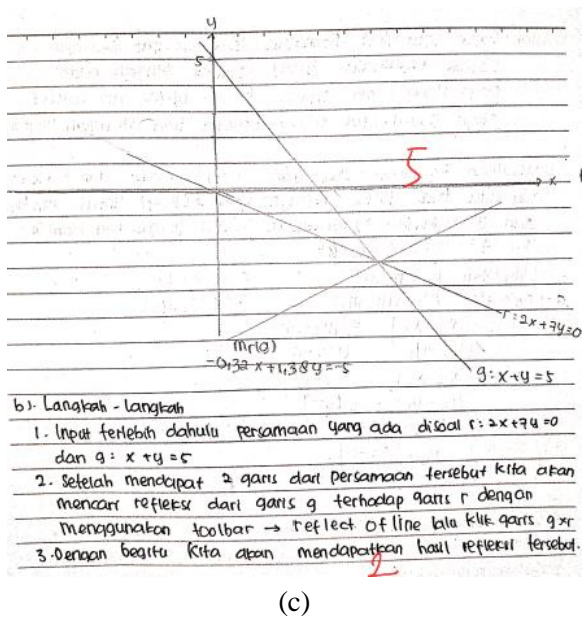 y
5
5
x
r: 2x+7y=0
Mr(g)
-0,32x+1,38y=-5
g: x+y=5
b). Langkah - langkah
1. Input terlebih dahulu persamaan yang ada disoal r: 2x+7y=0
dan g: x+y=5
2. Setelah mendapat 2 garis dari persamaan tersebut kita akan
mencari refleksi dari garis g terhadap garis r dengan
menggunakan toolbar → reflect of line lalu klik garis g×r
3. Dengan begitu kita akan mendapatkan hasil refleksi tersebut.
2
(c)